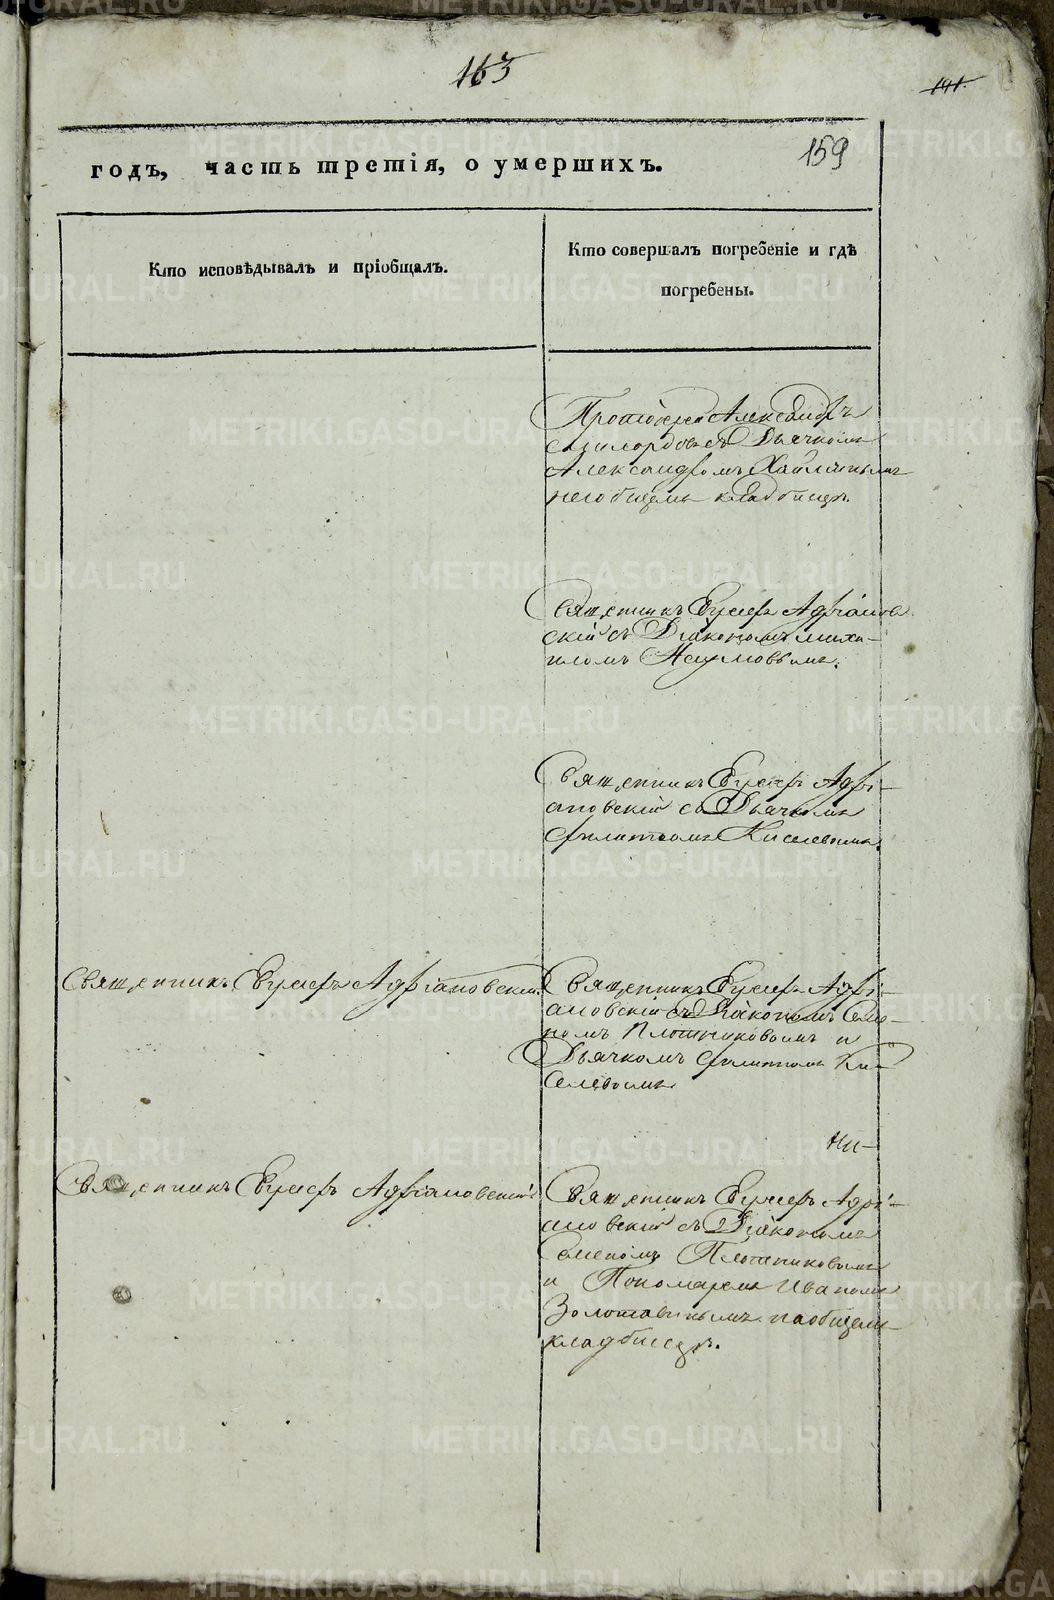 163
191.
159
годъ, часть третія, о умершихъ.
Кто исповѣдывалъ и пріобщалъ.
Кто совершалъ погребеніе и гдѣ
погребены.
Протоіерей Александръ
съ Дьячкомъ
Александромъ
кладбищѣ.
Священникъ Евѵсигъ Адріанов
скій съ Діакономъ Миха-
иломъ Наумовымъ.
Священникъ Адрі-
ановскій съ Дьячкомъ
Филиппомъ Киселевымъ.
Священникъ Адріановскій.
Священникъ Адрі-
ановскій съ Діакономъ Семе-
номъ Плотниковымъ и
Дьячкомъ Филиппомъ Ки-
селевымъ
Ни-
Священникъ Адріановскій
Священникъ Адрі-
ановскій съ Діакономъ
Семеномъ Плотниковымъ
и Пономаремъ Иваномъ
Золотавинымъ на общемъ
кладбищѣ.
METRIKI.GASO-URAL.RU